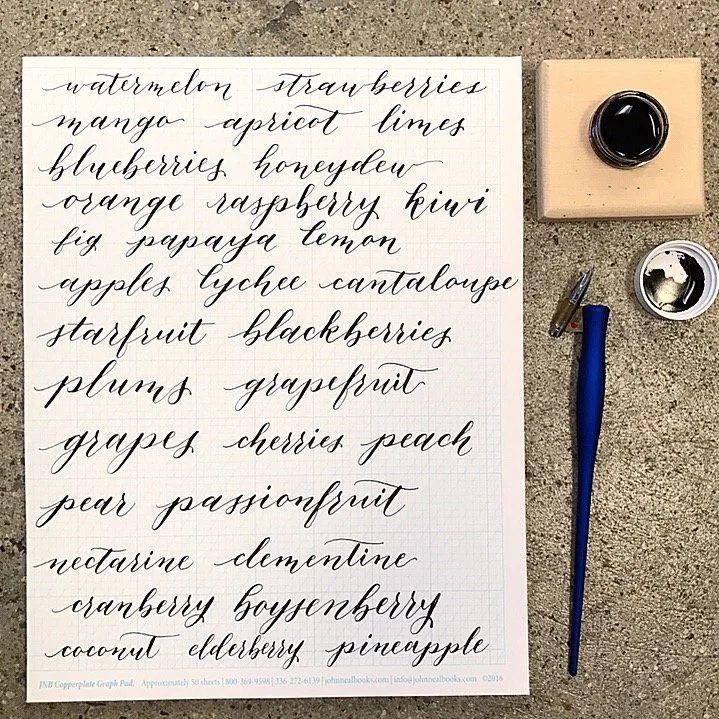 watermelon strawberries
mango apricot limes
blueberries honeydew
orange raspberry kiwi
fig papaya lemon
apples lychee cantaloupe
starfruit blackberries
plums grapefruit
grapes cherries peach
pear passionfruit
nectarine clementine
cranberry boysenberry
coconut elderberry pineapple
JNB Copperplate Graph Pad. Approximately 50 sheets | 800-369-9598 | 336-272-6139 | johnnealbooks.com | info@johnnealbooks.com ©2016